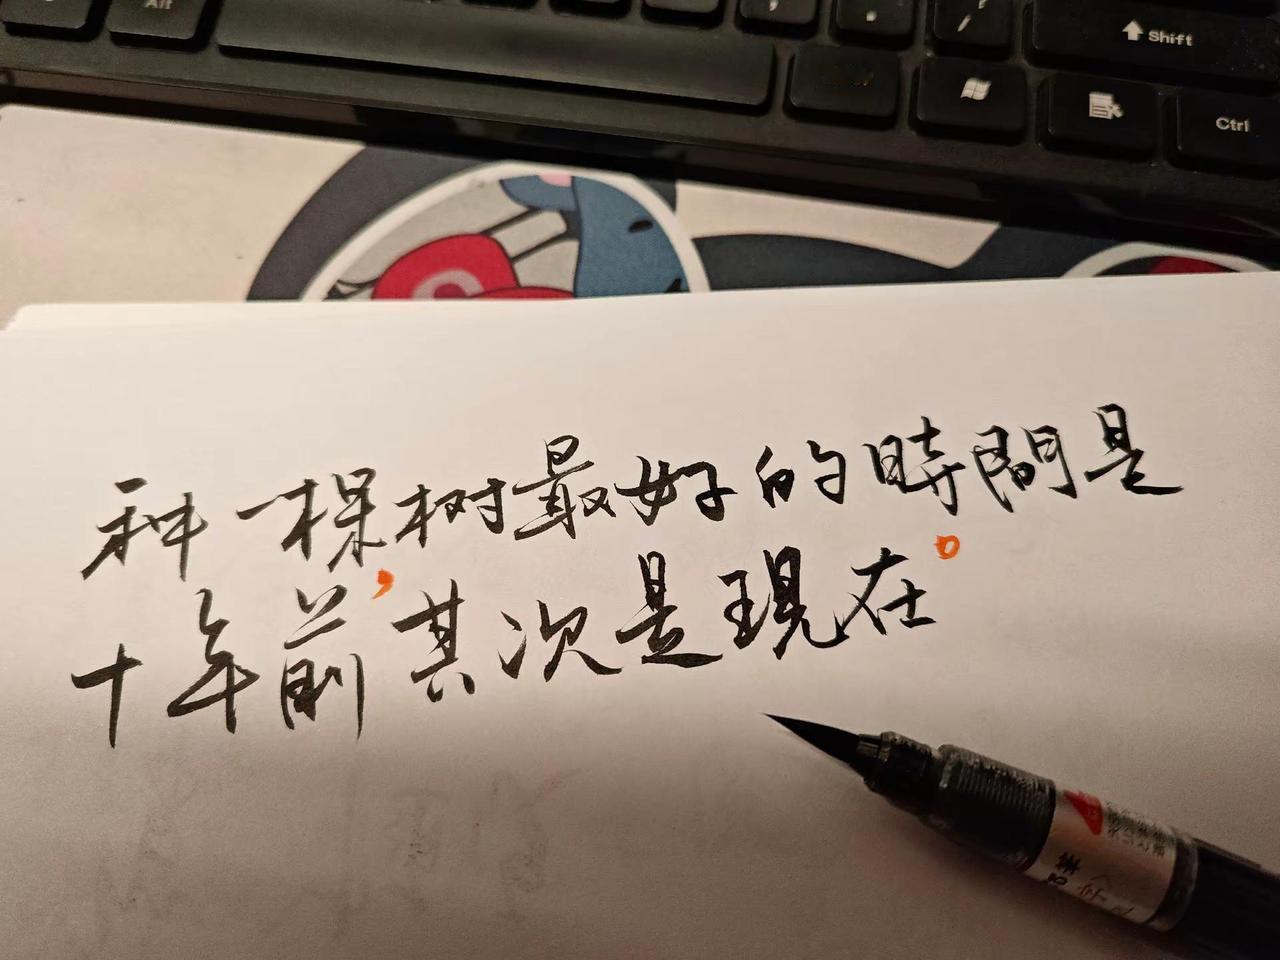 Alt
Shift
Ctrl
种一棵树最好的時間是
十年前，其次是現在。